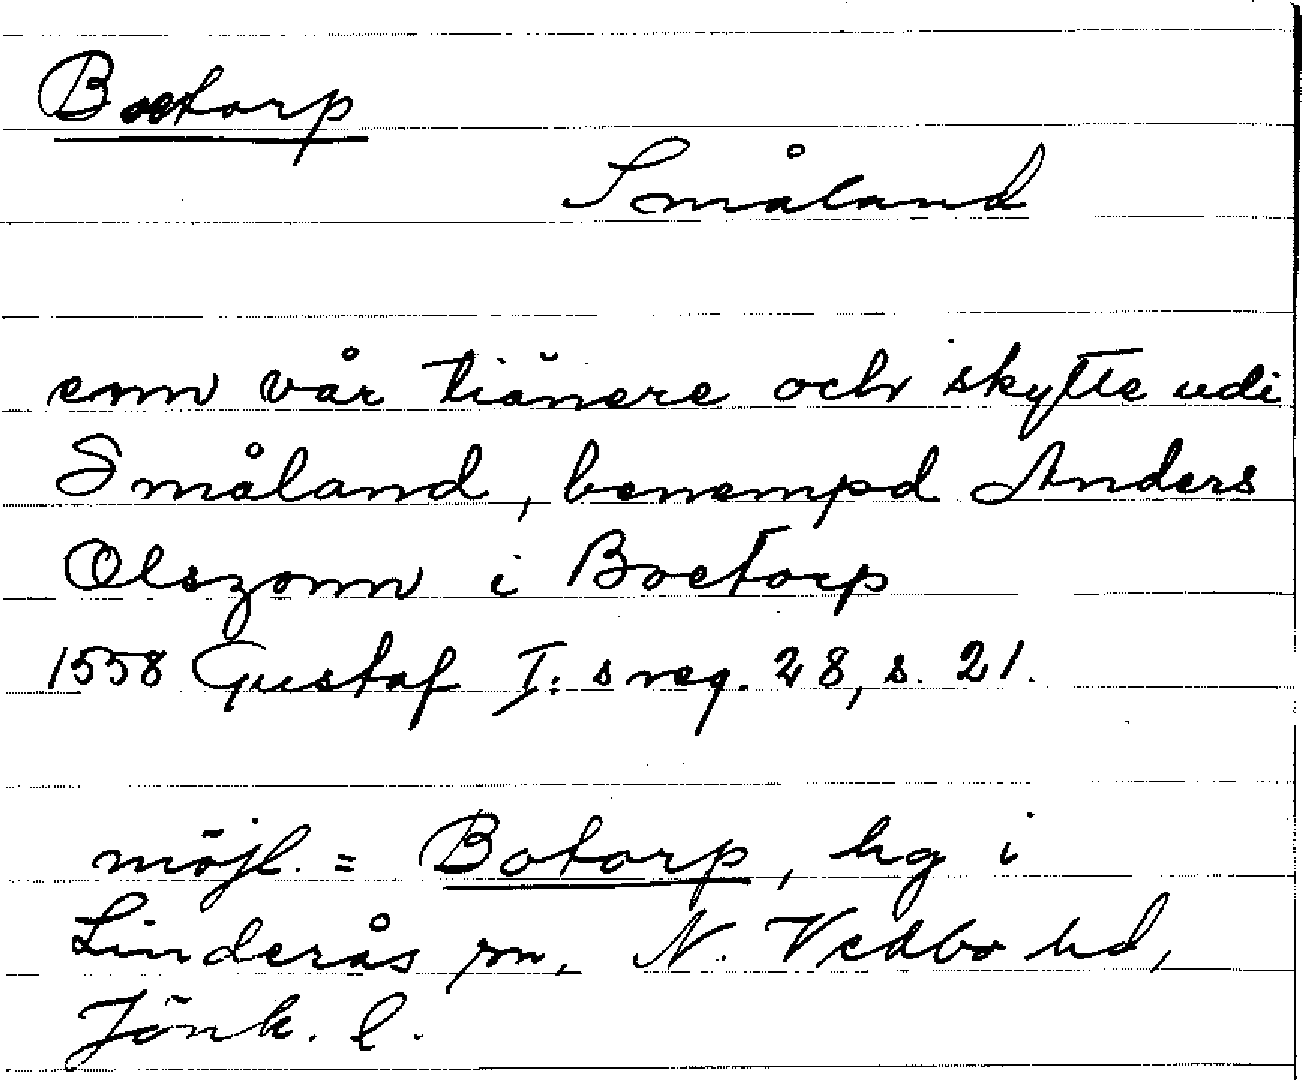 Boetorp
Småland
enn vår tiänere och skytte udi
Småland, benempd Anders
Olszonn i Boetorp
1558 Gustaf I:s reg. 28, s. 21.
möjl. = Botorp, hg i
Linderås sn, N. Vedbo hd,
Jönk. l.